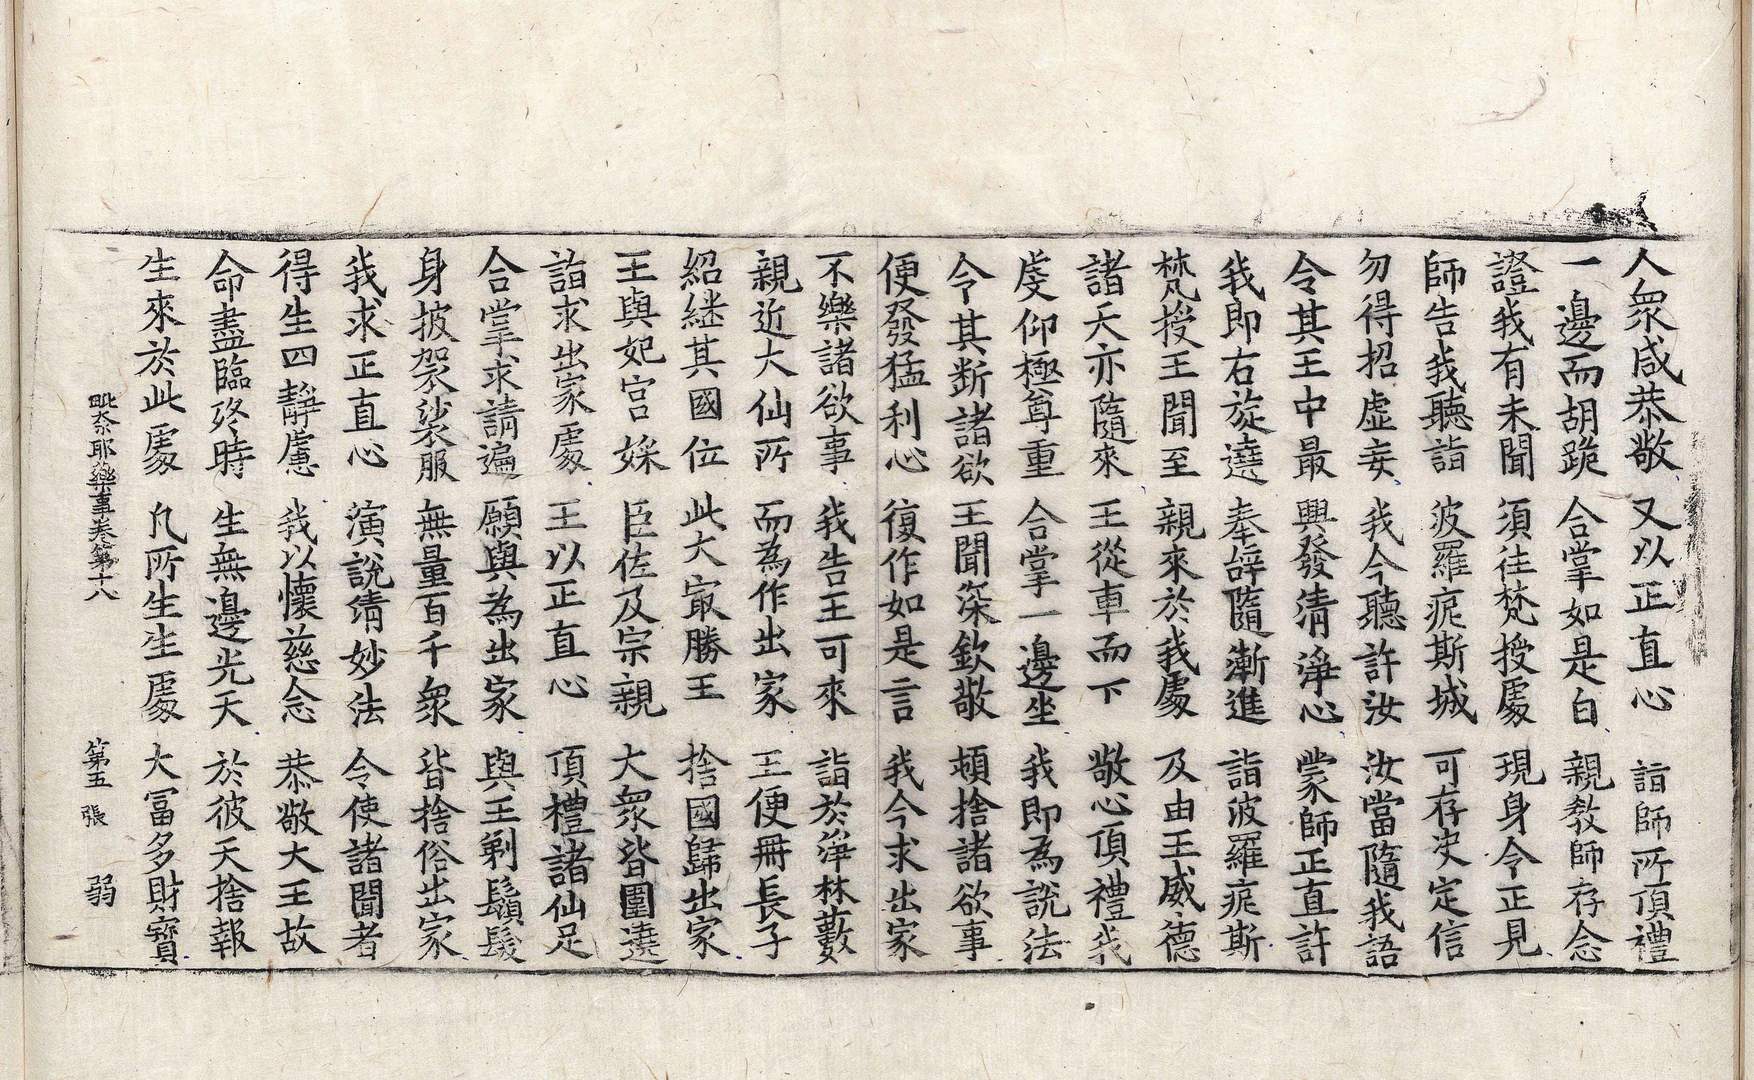 人衆咸恭敬 又以正直心 詣師所頂禮
一邊而胡跪 合掌如是白 親教師存念
證我有未聞 須往梵授處 現身令正見
師告我聽詣 波羅痆斯城 可存決定信
勿得招虛妄 我今聽許汝 汝當隨我語
令其王中最 興發清淨心 蒙師正直許
我即右旋遶 奉辭隨漸進 詣波羅痆斯
梵授王聞至 親來於我處 及由王威德
諸天亦隨來 王從車而下 敬心頂禮我
虔仰極尊重 合掌一邊坐 我即為說法
令其斷諸欲 王聞深欽敬 頓捨諸欲事
便發猛利心 復作如是言 我今求出家
不樂諸欲事 我告王可來 詣於淨林藪
親近大仙所 而為作出家 王便冊長子
紹繼其國位 此大㝡勝王 捨國歸出家
王與妃宮婇 臣佐及宗親 大衆皆圍遶
詣求出家處 王以正直心 頂禮諸仙足
合掌求請遍 願與為出家 與王剃鬚髮
身披袈裟服 無量百千衆 皆捨俗出家
我求正直心 演說清妙法 令使諸聞者
得生四靜慮 我以懷慈念 恭敬大王故
命盡臨終時 生無邊光天 於彼天捨報
生來於此處 凡所生生處 大富多財寶
毗奈耶藥事卷第十八 第五張 弱